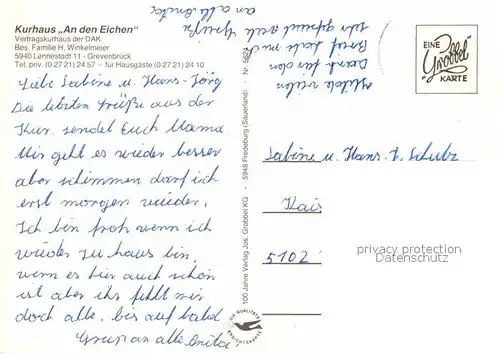 Kurhaus „An den Eichen"
Vertragskurhaus der DAK
Bes. Familie H. Winkelmeier
5940 Lennestadt 11 - Grevenbrück
Tel. priv. (0 27 21) 24 57 – für Hausgäste (0 27 21) 24 10
Liebe Sabine u. Hans-Jörg
Die letzten Grüße aus der
Kur. sendet Euch Mama.
Mir geht es wieder besser
aber schwimmen darf ich
erst morgen wieder.
Ich bin froh wenn ich
wieder zu haus bin,
wenn es hier auch schön
ist aber ihr fehlt mir
doch alle, bis auf bald
Gruß an alle Anita
vielen
Dank für den
Brief habe mich
sehr gefreut viele Grüße
an alle Anita
100 Jahre Verlag Jos. Grobbel KG - 5948 Fredeburg (Sauerland) - Nr.
DIE QUALITÄTS ANSICHTSKARTE
EINE
Grobbel
KARTE
Sabine u. Hans J. Schulz
5102
privacy protection
Datenschutz